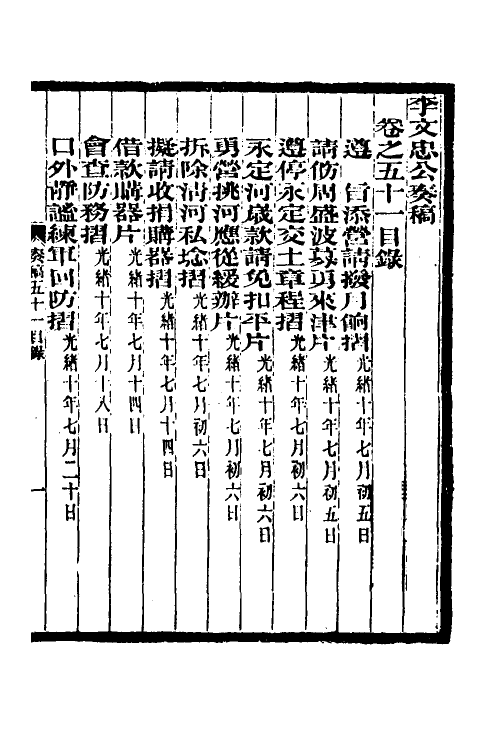 李文忠公奏稿
卷之五十一目錄
遵 旨添營請撥月餉摺光緒十年七月初五日
請飭周盛波募勇來津片光緒十年七月初五日
遵停永定交土章程摺光緒十年七月初六日
永定河歲款請免扣平片光緒十年七月初六日
勇營挑河應從緩辦片光緒十年七月初六日
拆除沽河私埝摺光緒十年七月初六日
擬請收捐購器摺光緒十年七月十四日
借款購器片光緒十年七月十四日
會查防務摺光緒十年七月十八日
口外靜謐練軍回防摺光緒十年七月二十日
奏稿五十一目錄
一